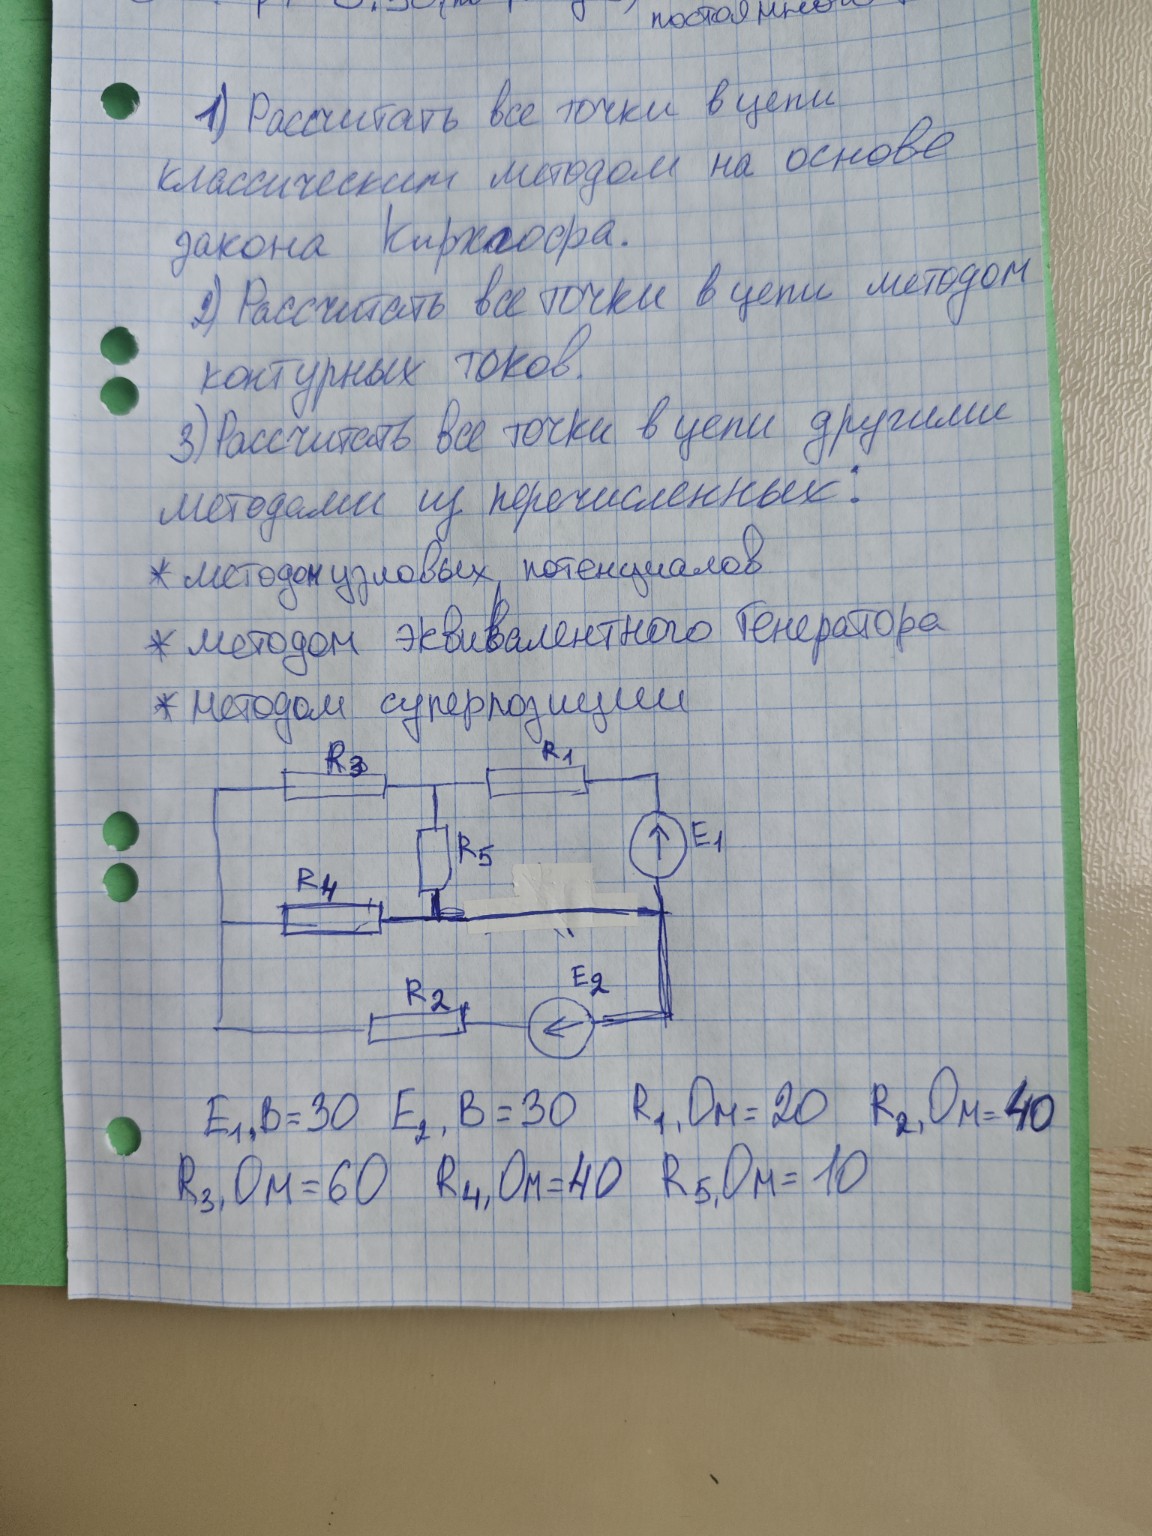 постоянного
1) Рассчитать все точки в цепи
классическим методом на основе
закона Кирхгофа.
2) Рассчитать все точки в цепи методом
контурных токов.
3) Рассчитать все точки в цепи другими
методами из перечисленных:
* методом узловых потенциалов
* методом эквивалентного генератора
* Методом суперпозиции
R3 R1
R5 E1
R4
E2
R2
E1, В=30 E2, В=30 R1, Ом=20 R2, Ом=40
R3, Ом=60 R4, Ом=40 R5, Ом=10